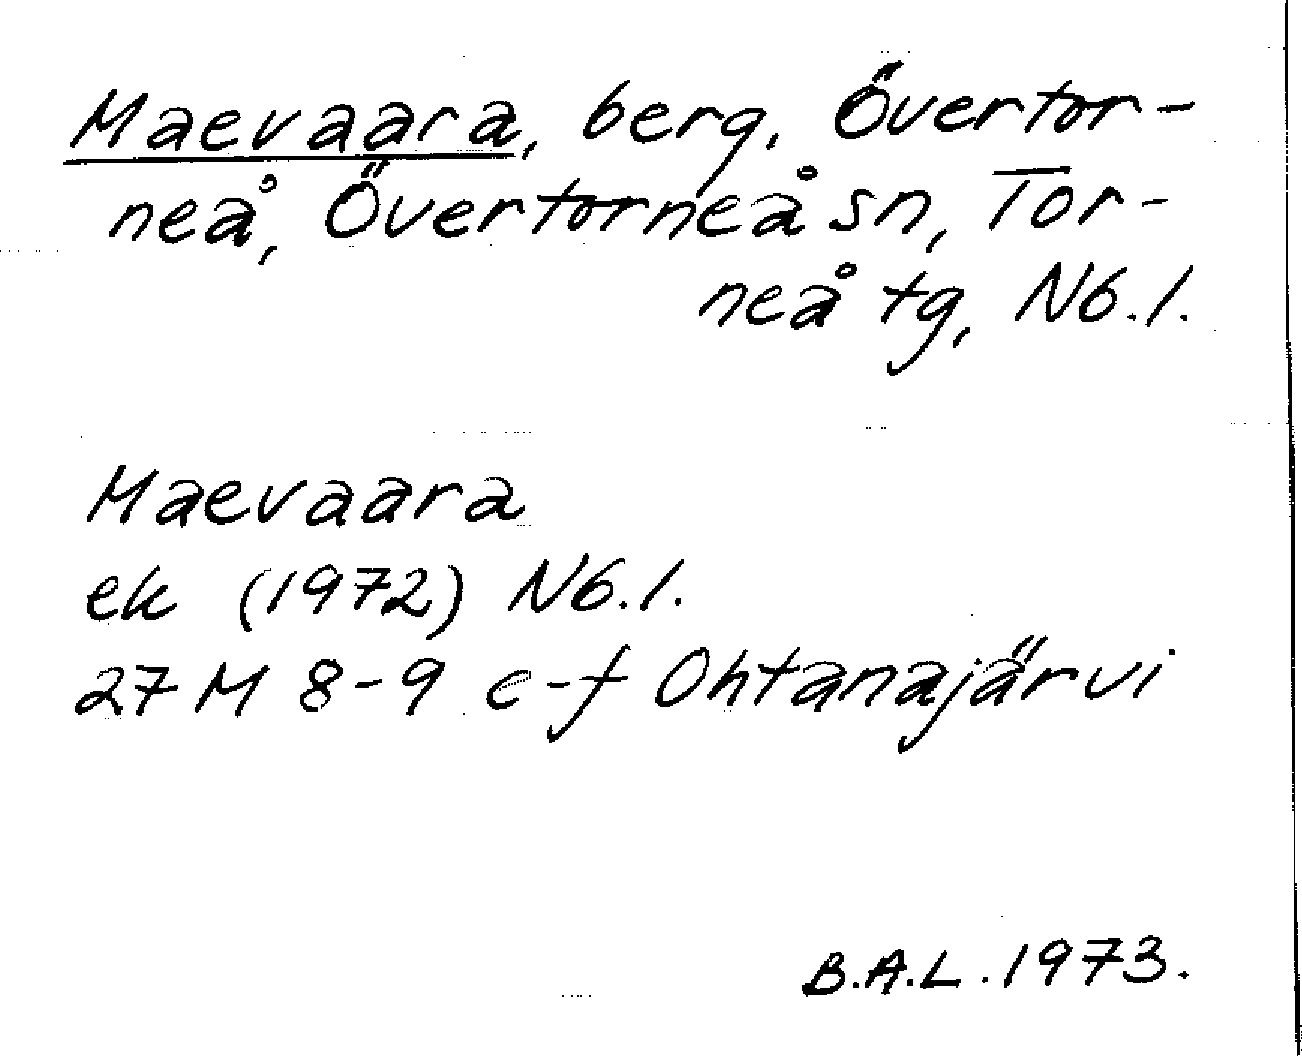 Maevaara, berg, Övertor-
neå, Övertorneå sn, Tor-
neå tg, Nb.l.
Maevaara
ek (1972) Nb.l.
27 M 8-9 c-f Ohtanajärvi
B.A.L. 1973.